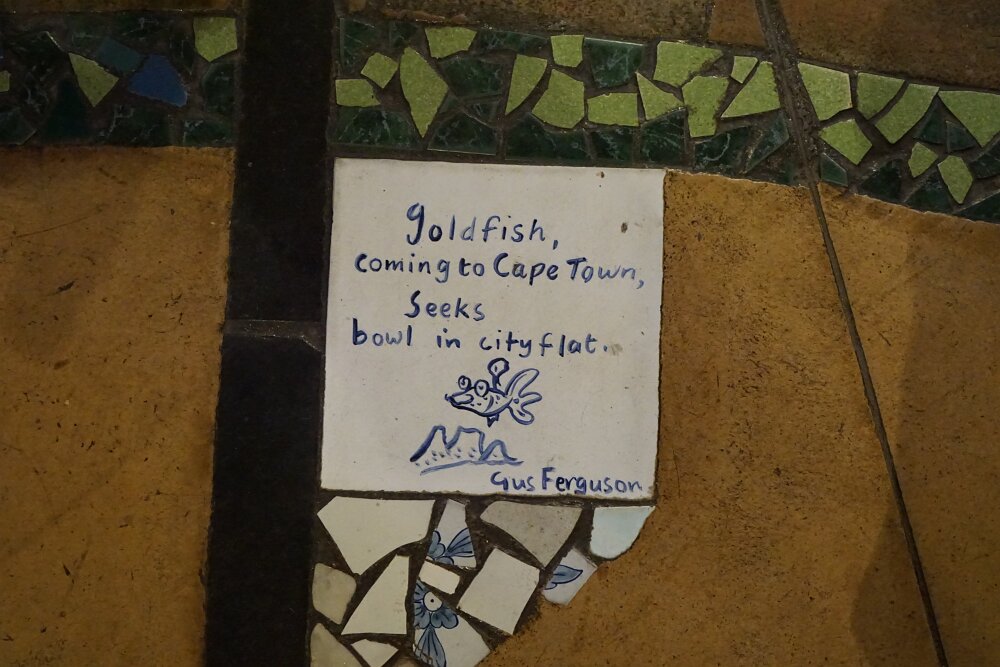 goldfish,
coming to Cape Town,
Seeks
bowl in city flat.
Gus Ferguson